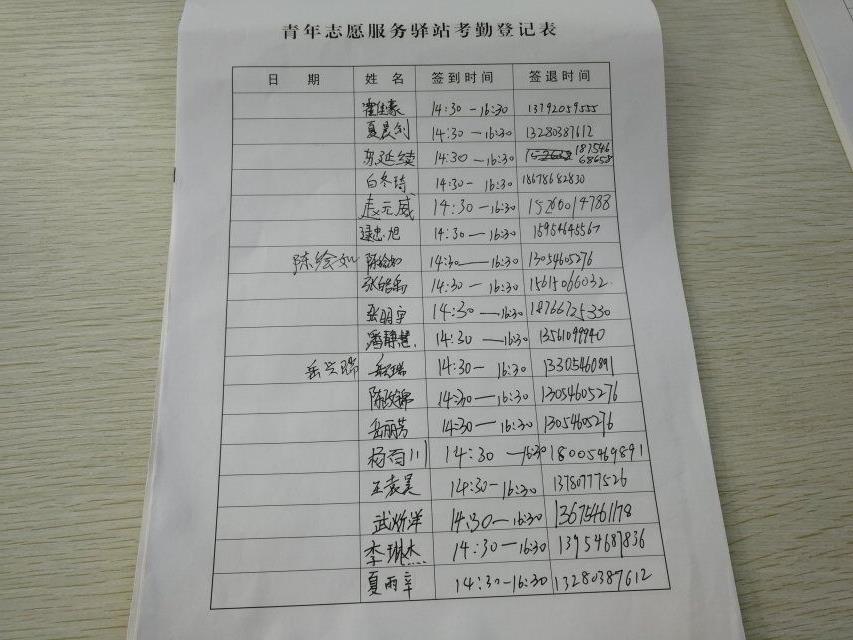 青年志愿服务驿站考勤登记表
日 期 姓 名 签到时间 签退时间
14:30-16:30 13792059555
夏晨剑 14:30-16:30 13280387612
苏延续 14:30-16:30 18754668658
白冬琦 14:30-16:30 18678682830
赵元威 14:30-16:30 15266014788
逯忠旭 14:30-16:30 15954645567
陈绘如 陈绘如 14:30-16:30 13054605276
张皓禹 14:30-16:30 15615066032
张明宇 14:30-16:30 18766725330
潘静慧 14:30-16:30 13561099940
岳兴瑞 岳兴瑞 14:30-16:30 13305460891
陈政锦 14:30-16:30 13054605276
岳丽芳 14:30-16:30 13054605276
杨百川 14:30-16:30 18005469891
王袁昊 14:30-16:30 13780777526
武炘洋 14:30-16:30 13675461178
李琳杰 14:30-16:30 13954687836
夏雨辛 14:30-16:30 13280387612